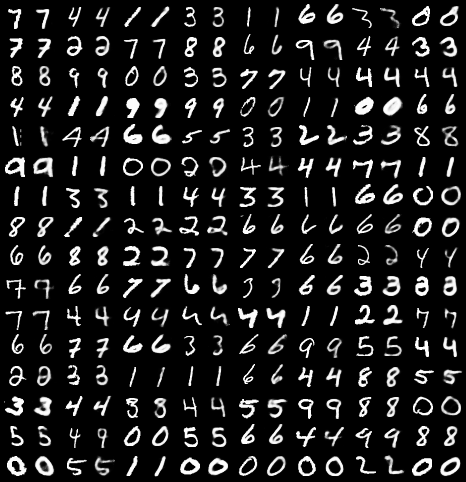 7 7 4 4 1 1 3 3 1 1 6 6 3 3 0 0
7 7 2 2 7 7 8 8 6 6 9 9 4 4 3 3
8 8 9 9 0 0 3 3 7 7 4 4 4 4 4 4
4 4 1 1 9 9 9 9 0 0 1 1 0 0 6 6
1 1 4 4 6 6 5 5 3 3 2 2 3 3 8 8
9 9 1 1 0 0 2 2 4 4 4 4 7 7 1 1
1 1 3 3 1 1 4 4 3 3 1 1 6 6 0 0
8 8 1 1 2 2 2 2 6 6 6 6 6 6 0 0
6 6 8 8 2 2 7 7 7 7 6 6 2 2 4 4
7 7 6 6 7 7 6 6 3 3 6 6 3 3 8 8
7 7 4 4 4 4 4 4 4 4 1 1 2 2 7 7
6 6 7 7 6 6 3 3 6 6 9 9 5 5 4 4
2 2 3 3 1 1 1 1 6 6 4 4 8 8 5 5
3 3 4 4 3 8 4 4 5 5 9 9 8 8 0 0
5 5 4 9 0 0 5 5 6 6 4 4 9 9 8 8
0 0 5 5 1 1 0 0 0 0 0 0 2 2 0 0